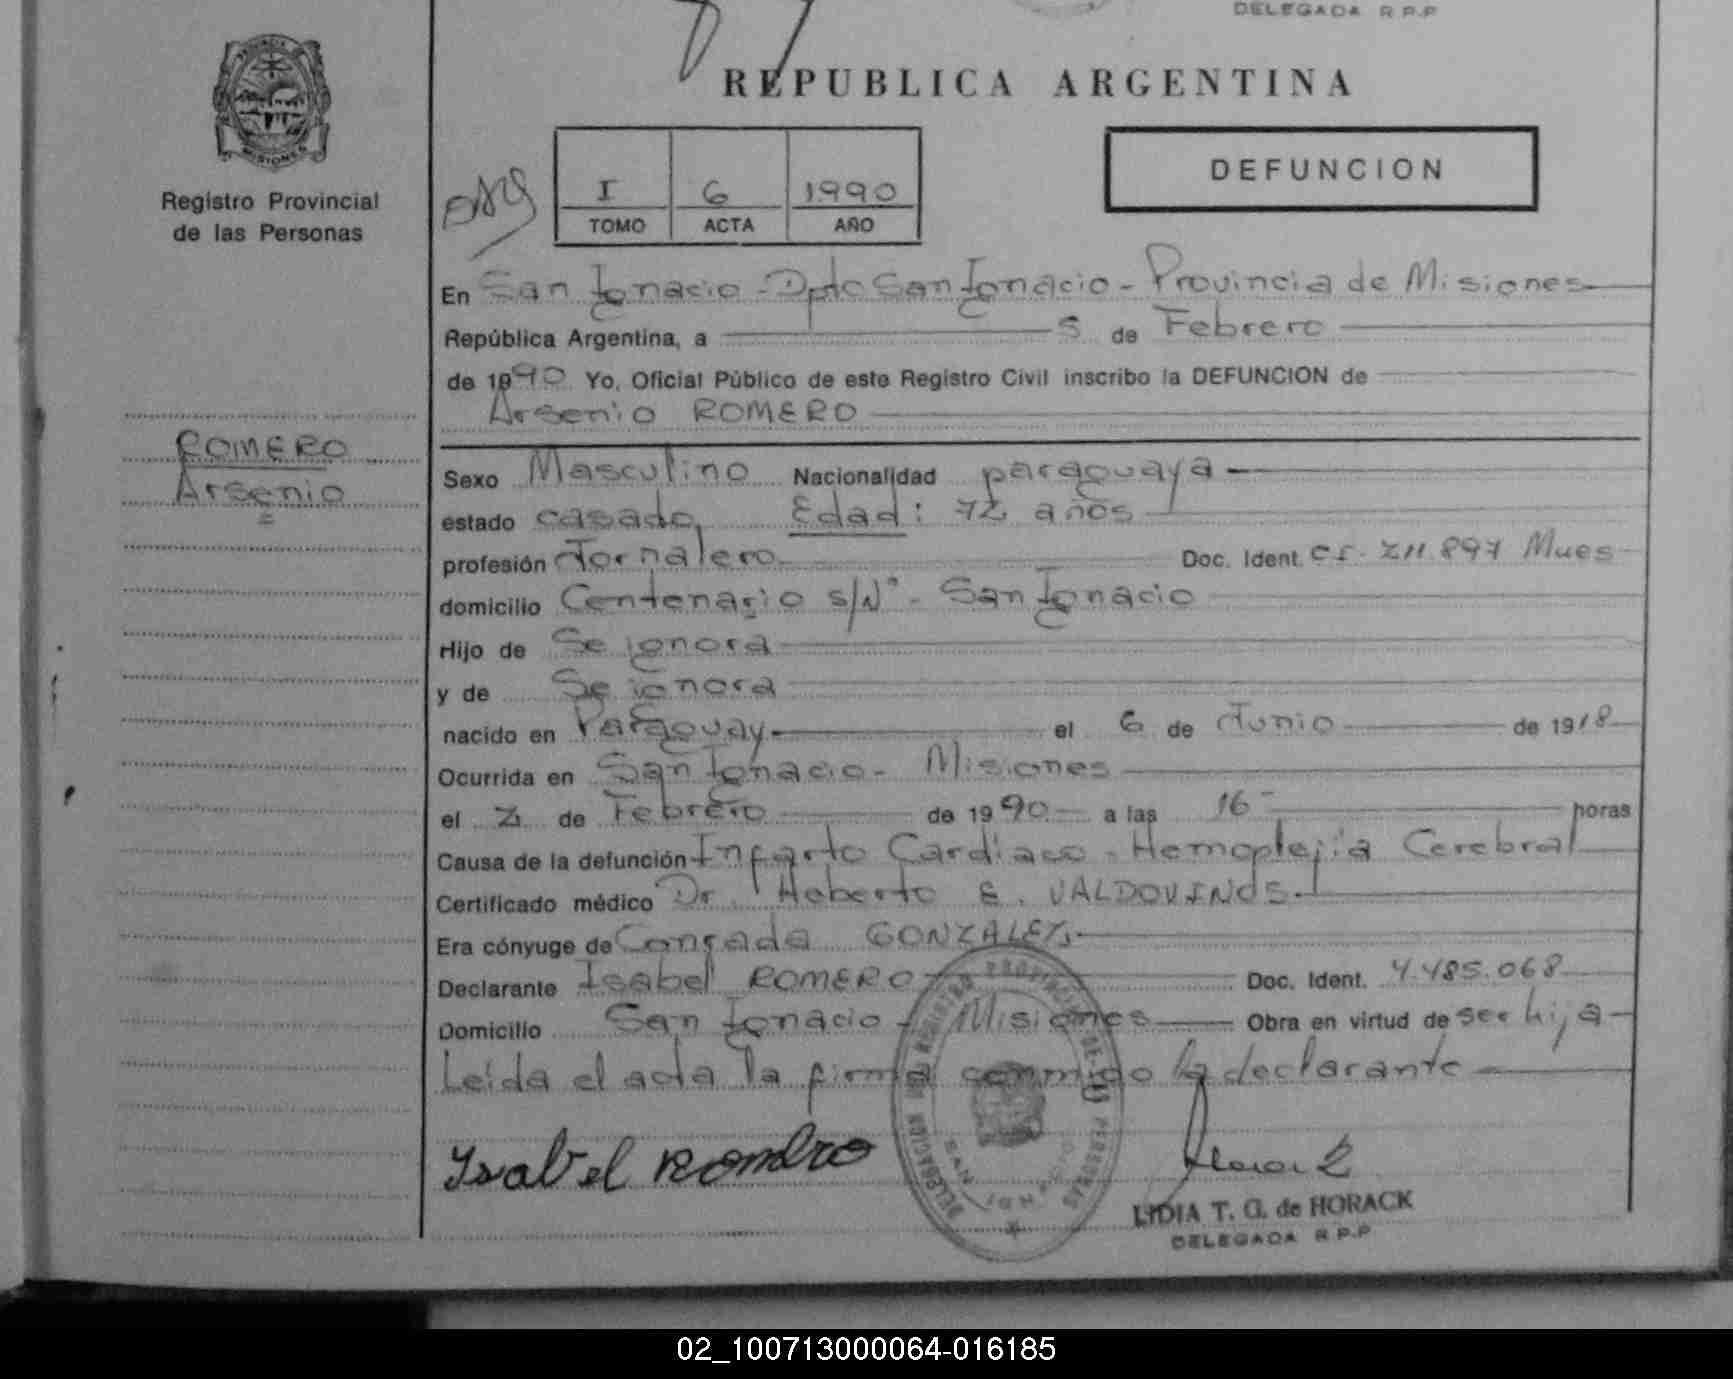 DELEGADA R.P.P
REPUBLICA ARGENTINA
MISIONES
Registro Provincial
de las Personas
I 6 1990
TOMO ACTA AÑO
DEFUNCION
En San Ignacio - Dpto San Ignacio - Provincia de Misiones
República Argentina, a 5 de Febrero
de 1990 Yo, Oficial Público de este Registro Civil inscribo la DEFUNCION de
Arsenio ROMERO
ROMERO
Arsenio
Sexo Masculino Nacionalidad paraguaya
estado casado, Edad: 72 años
profesión Jornalero Doc. Ident. CI. 211.897 Mnes
domicilio Centenario s/Nº - San Ignacio
Hijo de Se ignora
y de Se ignora
nacido en Paraguay el 6 de Junio de 1918
Ocurrida en San Ignacio - Misiones
el 2 de Febrero de 1990 a las 16 horas
Causa de la defunción Infarto Cardiaco - Hemoplejia Cerebral
Certificado médico Dr. Heberto E. VALDOVINOS
Era cónyuge de GONZALEZ
Declarante Isabel ROMERO Doc. Ident. 4.485.068
Domicilio San Ignacio - Misiones Obra en virtud de ser hija
Leida el acta la firma conmigo la declarante
Isabel Romero
DELEGACION REGISTRO PROVINCIAL DE LAS PERSONAS
SAN IGNACIO
LYDIA T. G. de HORACK
DELEGADA R.P.P
02_100713000064-016185